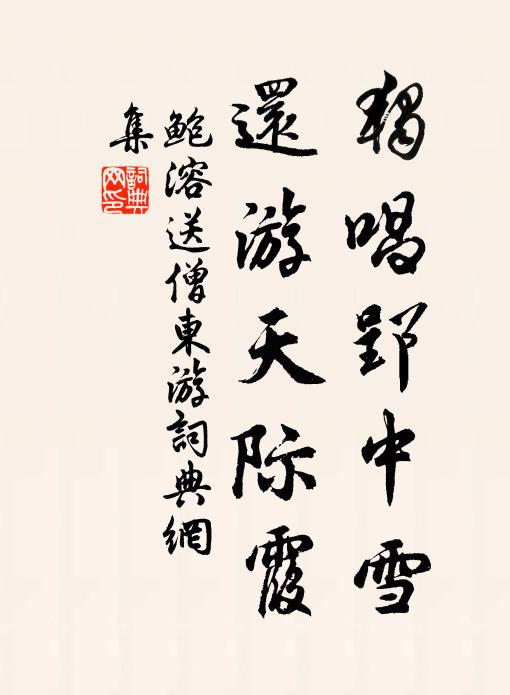 獨唱郢中雪
還游天际霞
鲍溶送僧東游詞典網
集
詞典網印